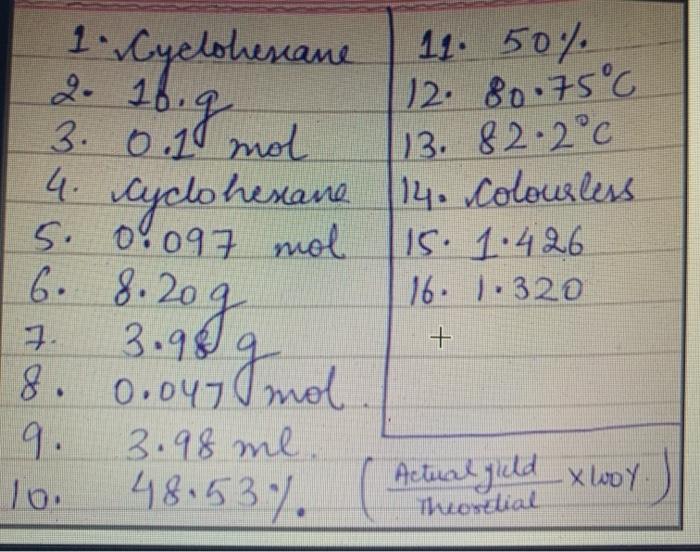 1. Cyclohexane
2. 10.g
3. 0.10 mol
4. cyclohexane
5. 0.097 mol
6. 8.20 g
7. 3.98 g
8. 0.047 mol.
9. 3.98 ml.
10. 48.53%. (Actual yield / Theoretial x 100%.)
11. 50%.
12. 80.75°C
13. 82.2°C
14. Colourless
15. 1.426
16. 1.320